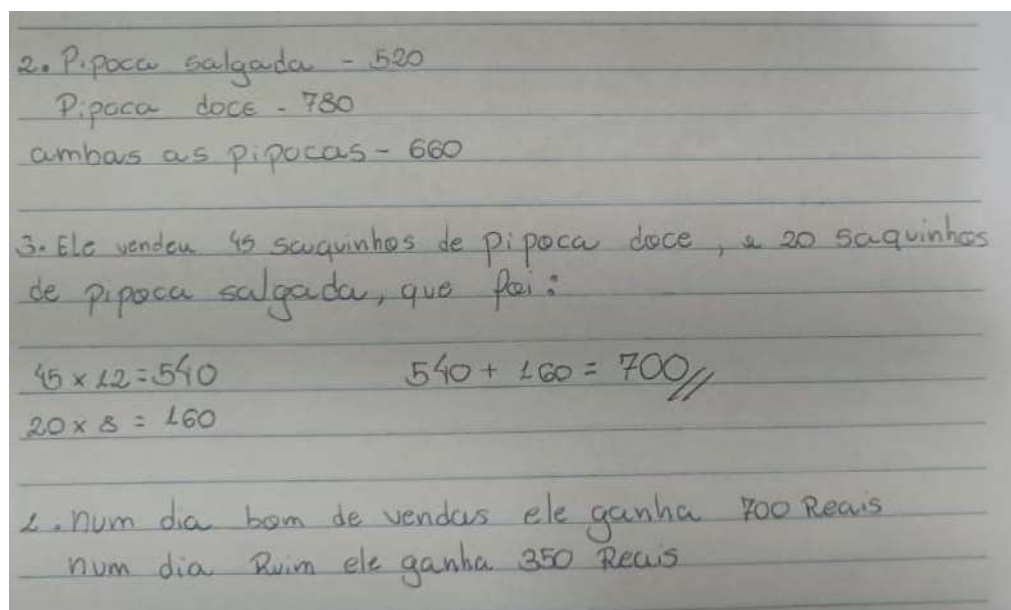 2. Pipoca salgada - 520
Pipoca doce - 780
ambas as pipocas - 660
3. Ele vendeu 45 saquinhos de pipoca doce, e 20 saquinhos
de pipoca salgada, que foi:
45 x 12 = 540 540 + 160 = 700//
20 x 8 = 160
1. num dia bom de vendas ele ganha 700 Reais
num dia Ruim ele ganha 350 Reais